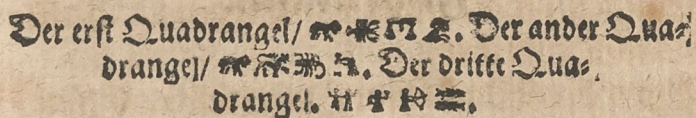 Der erst Quadrangel/ . Der ander Qua⸗
drangel/ . Der dritte Qua⸗
drangel. .